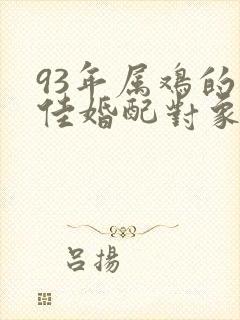 93年属鸡的
佳婚配對象
吕揚